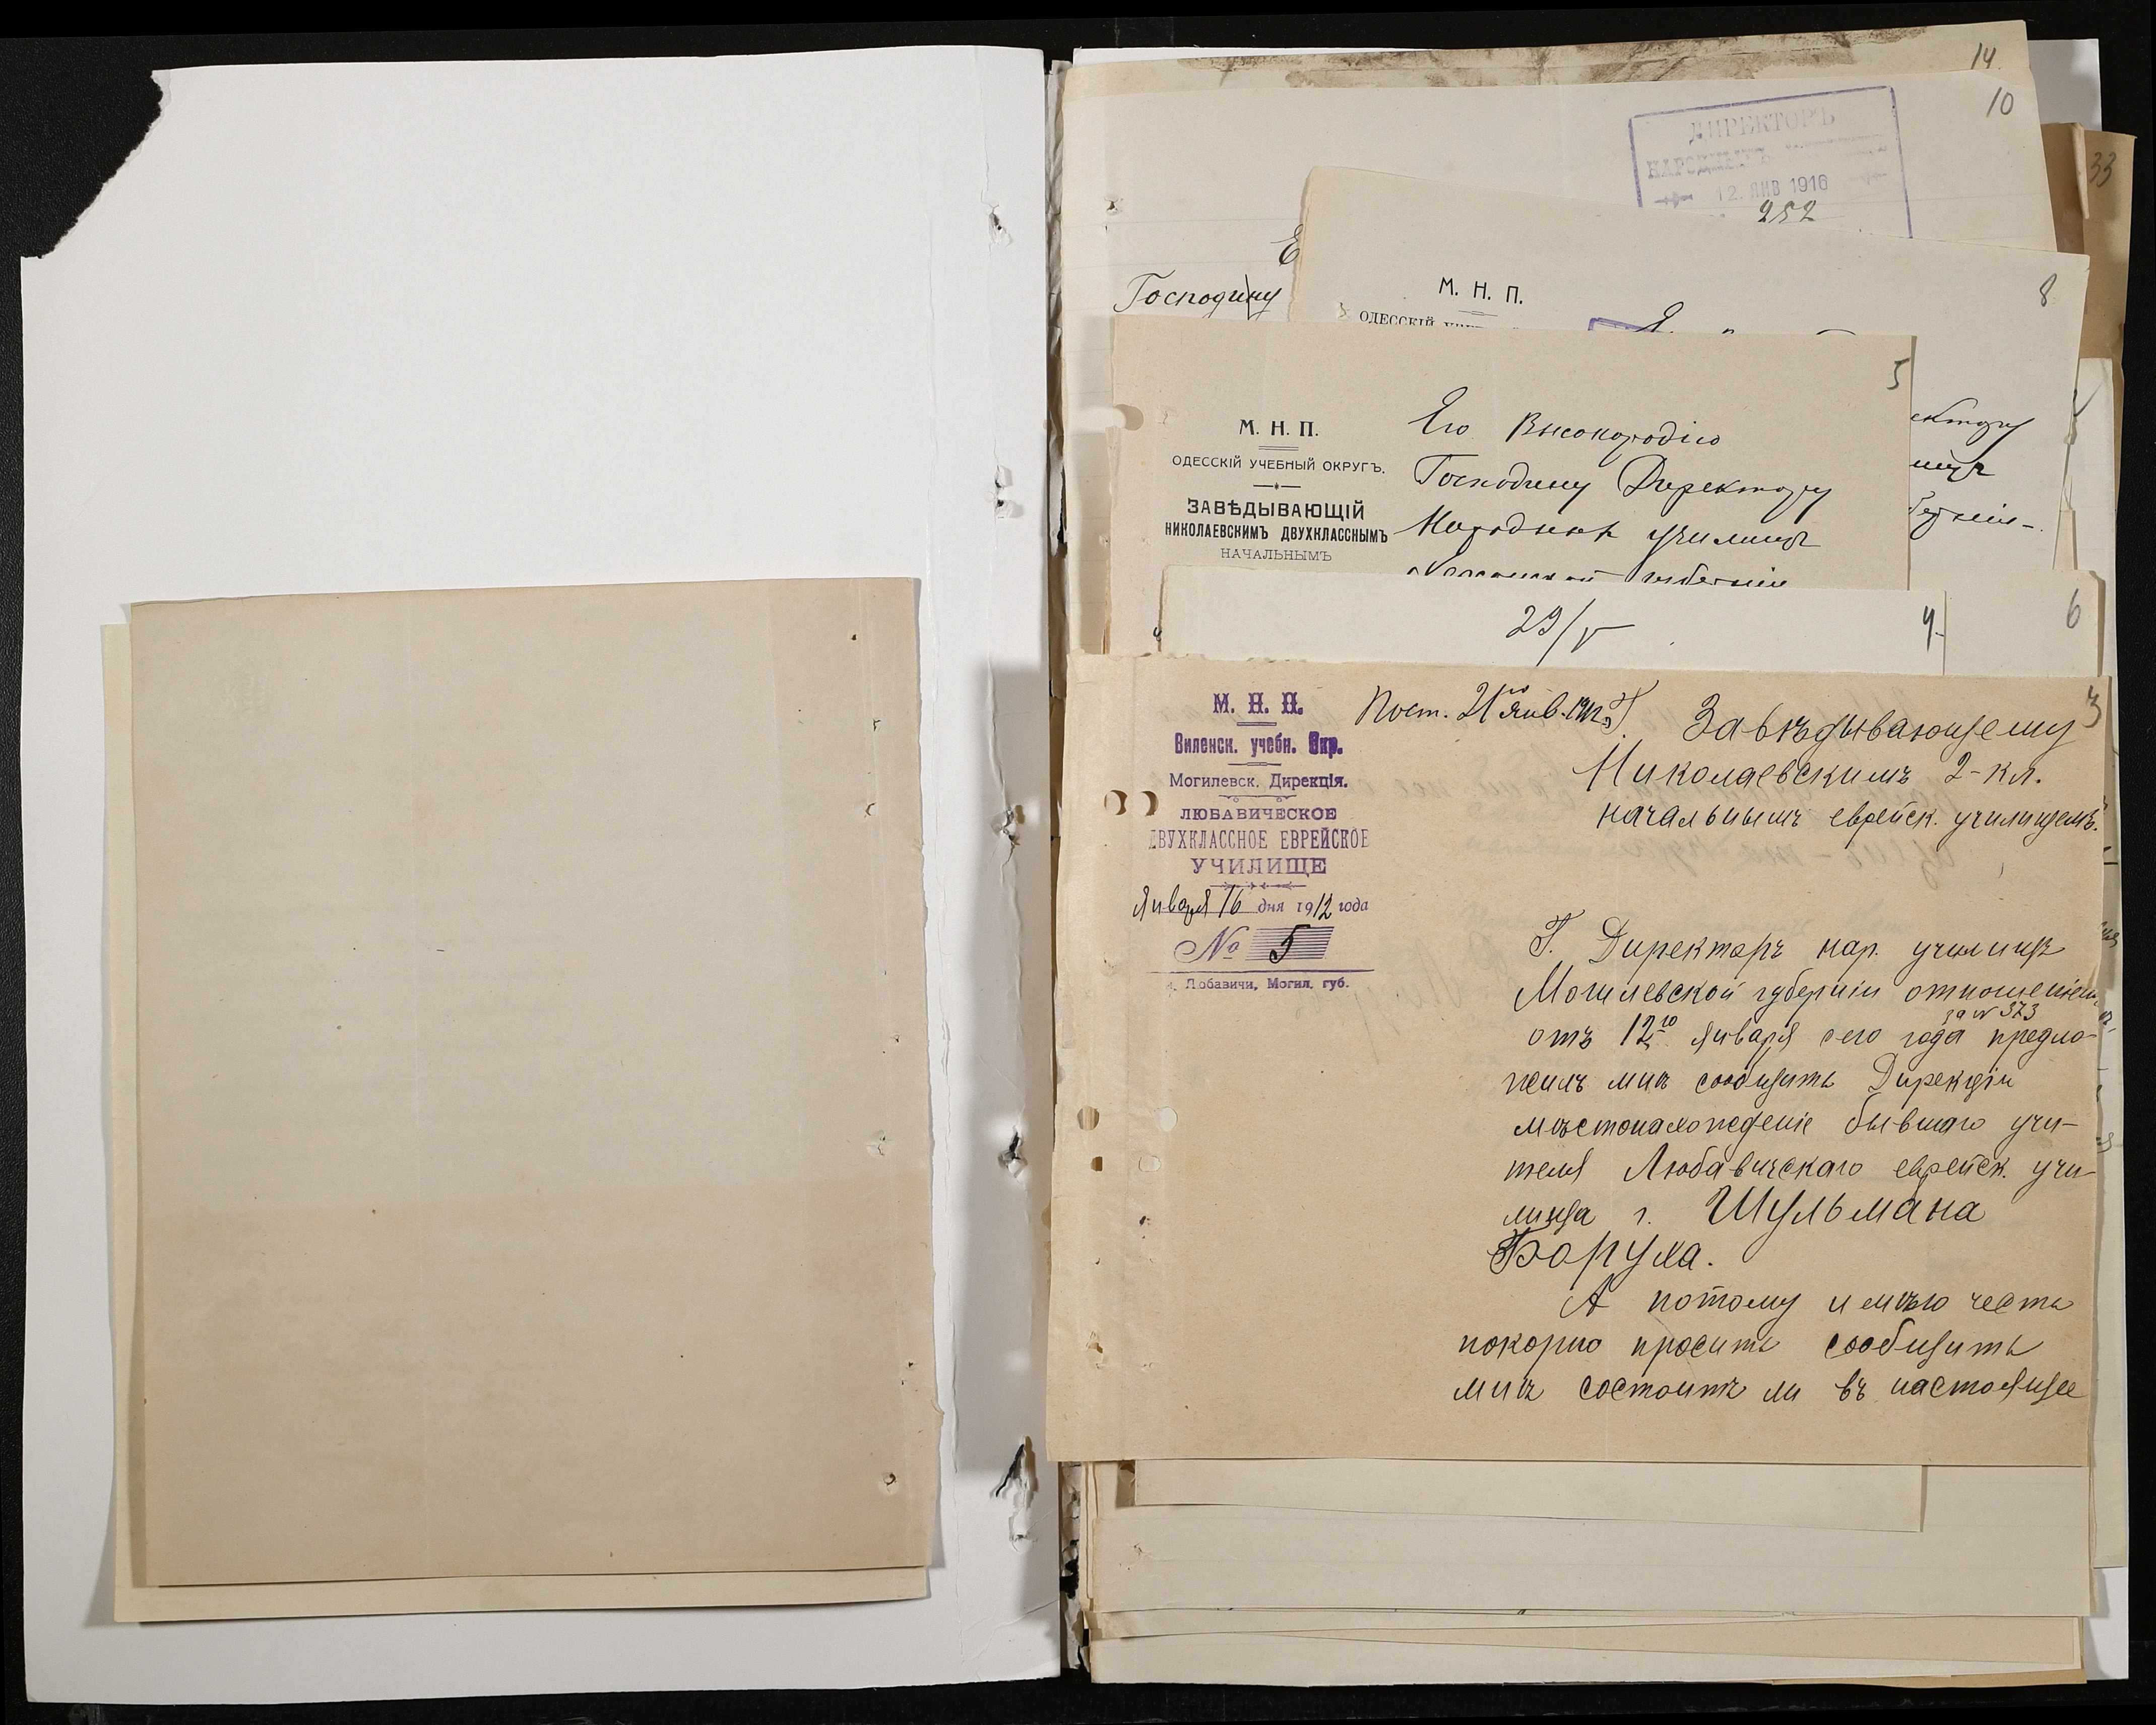 14
10
ДИРЕКТОРЪ
НАРОДНЫХЪ
12. ЯНВ 1916
252
33
Господину
8
М. Н. П.
ОДЕССКІЙ
5
М. Н. П.
ОДЕССКІЙ УЧЕБНЫЙ ОКРУГЪ.
ЗАВѢДЫВАЮЩІЙ
НИКОЛАЕВСКИМЪ ДВУХКЛАССНЫМЪ
НАЧАЛЬНЫМЪ
Его Высокородію
Господину Директору
Народныхъ училищъ
Херсонской губерніи
29/V
4
6
3
М. Н. П.
Виленск. учебн. Окр.
Могилевск. Дирекція.
ЛЮБАВИЧЕСКОЕ
ДВУХКЛАССНОЕ ЕВРЕЙСКОЕ
УЧИЛИЩЕ
Января 16 дня 1912 года
№ 5
м. Любавичи, Могил. губ.
Пост. 21го Янв. 1912 г.
Завѣдывающему
Николаевскимъ 2-кл.
начальнымъ еврейск. училищемъ.
Г. Директоръ нар. училищъ
Могилевской губерніи отношеніемъ
за № 373
отъ 12го января сего года предло-
жилъ мнѣ сообщить Дирекціи
мѣстонахожденіе бывшаго учи-
теля Любавичскаго еврейск. учи-
лища г. Шульмана
Боруха.
А потому имѣю честь
покорно просить сообщить
мнѣ состоитъ ли въ настоящее